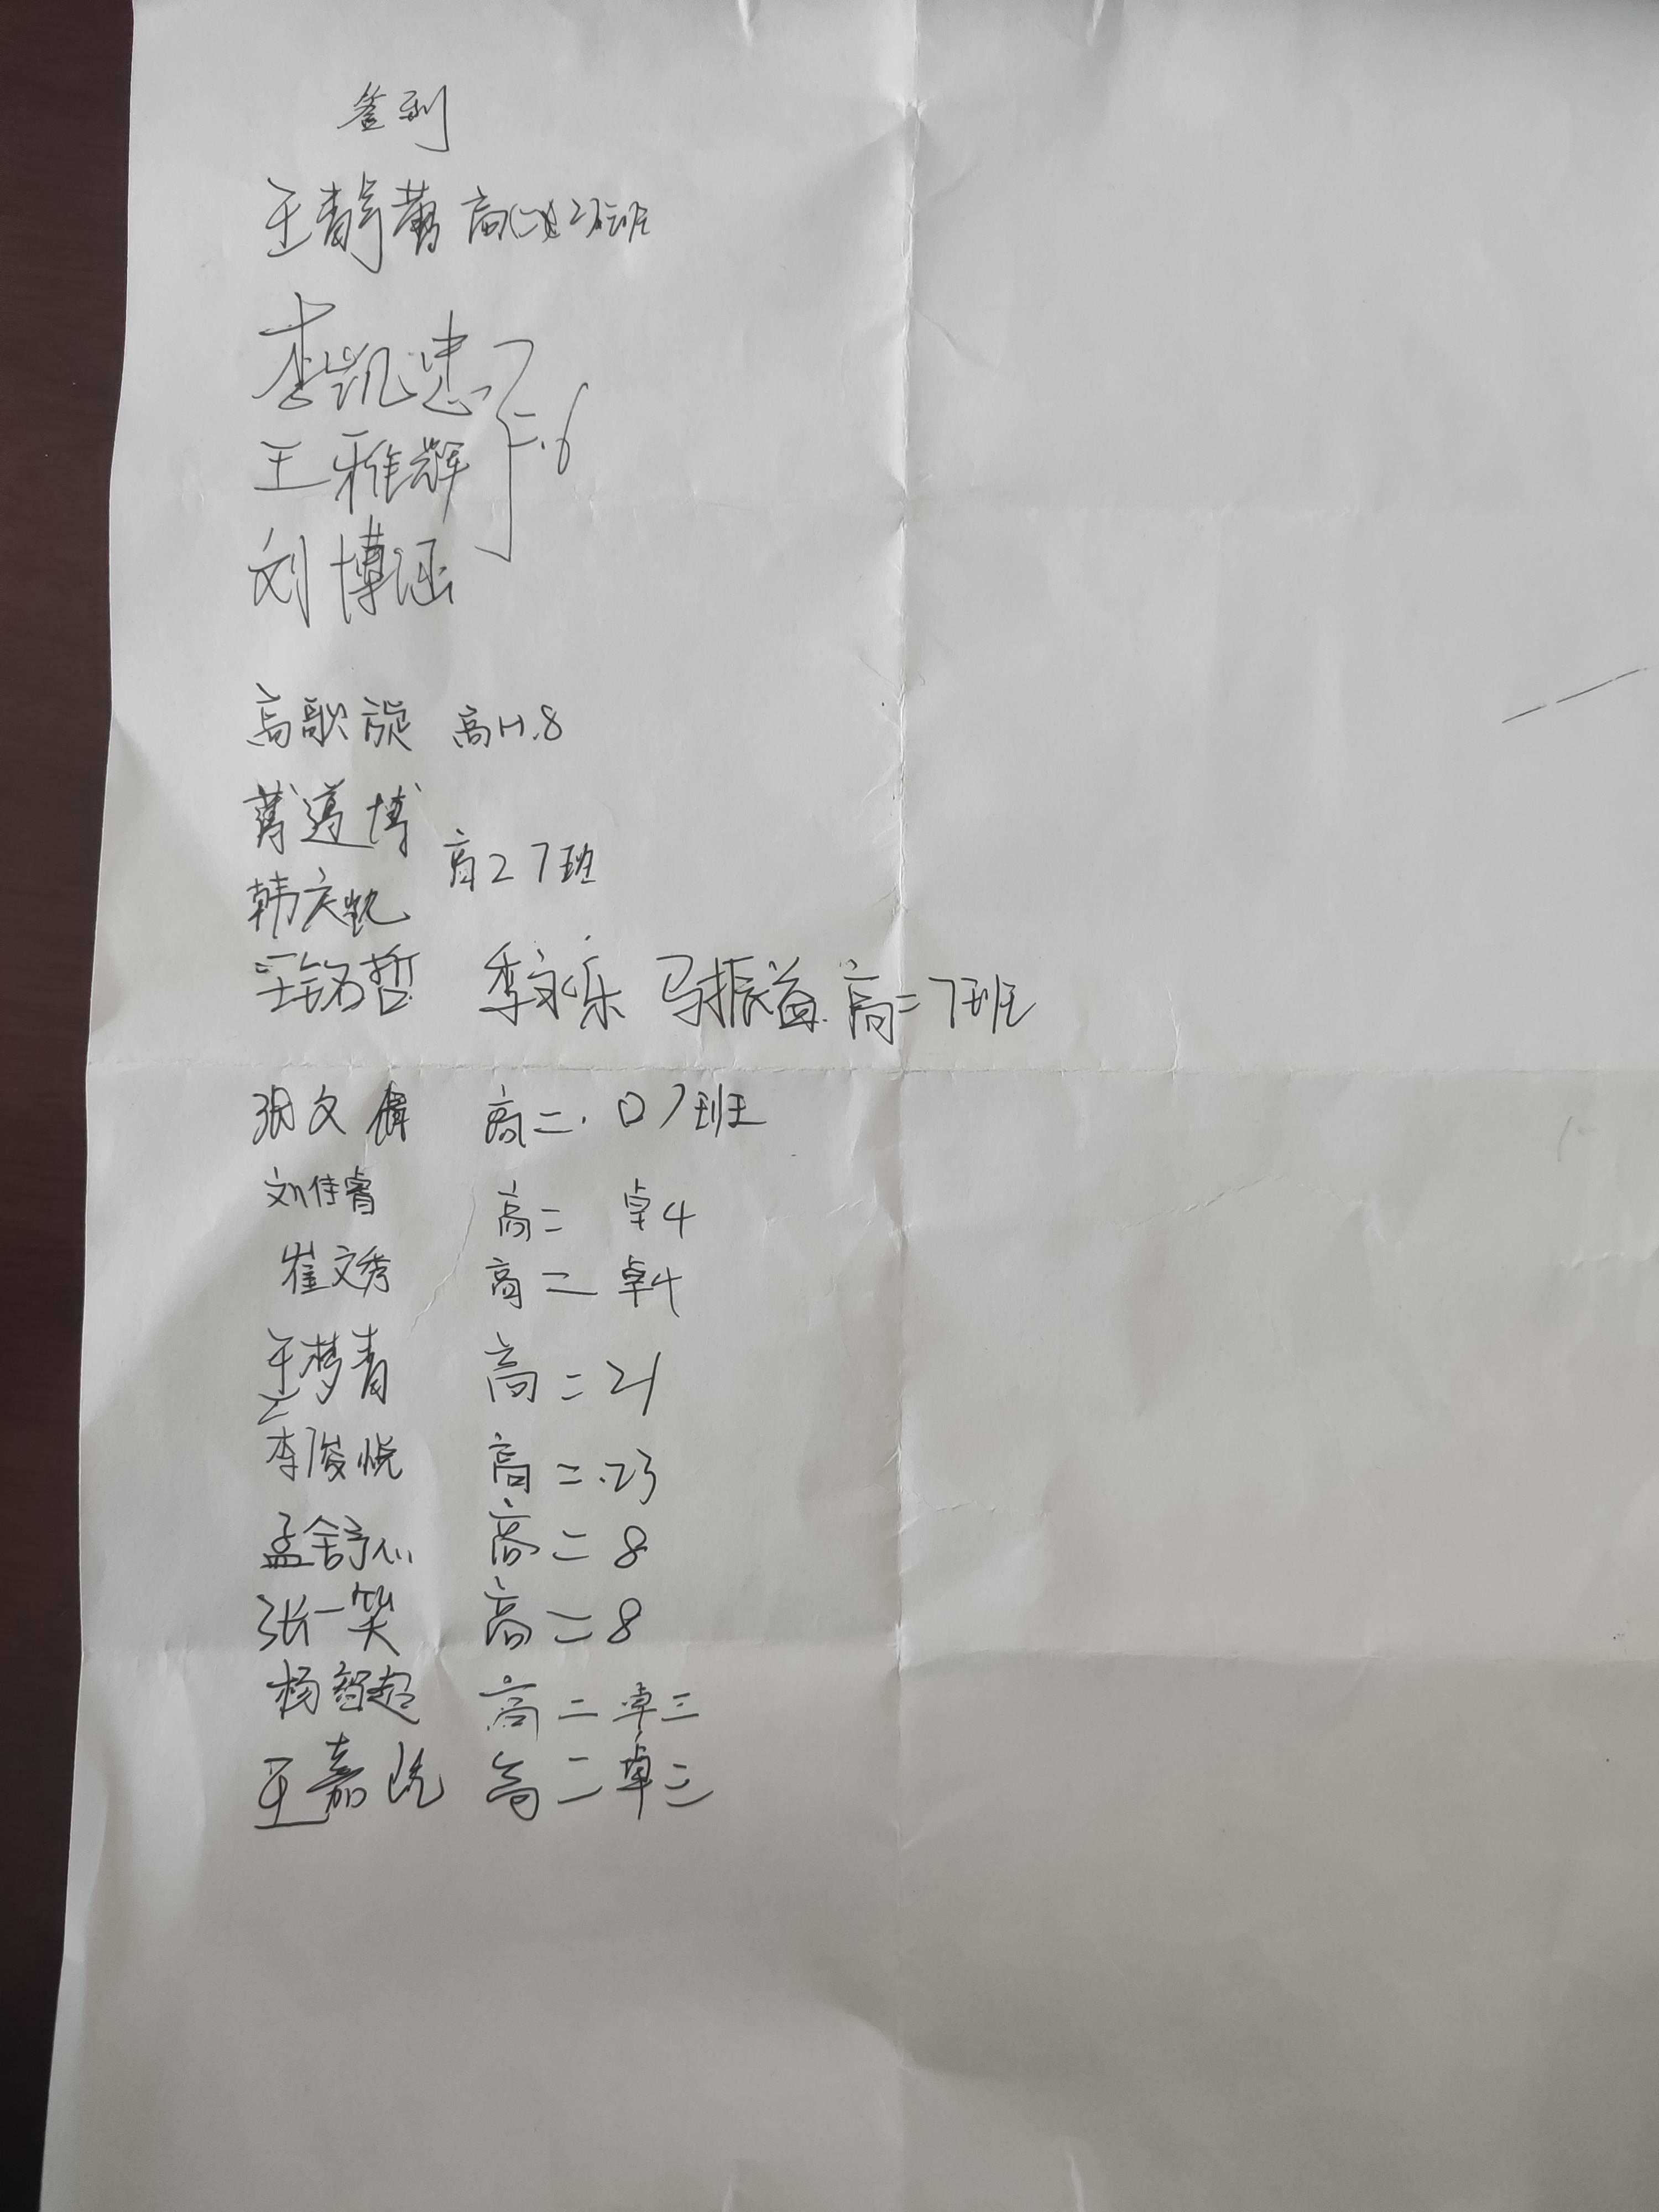 签到
王静萱 高(二) 2 班
李凯忠
王雅辉 二.6
刘博涵
高歌旋 高二.8
博
高2 7班
韩庆凯
王铭哲 李永乐 马振益 高二7班
张文 高二.07班
刘佳睿 高二 卓4
崔文秀 高二 卓4
王梦青 高二21
李俊悦 高二.23
孟舒心 高二8
张一笑 高二8
杨智超 高二卓三
王嘉 高二卓三